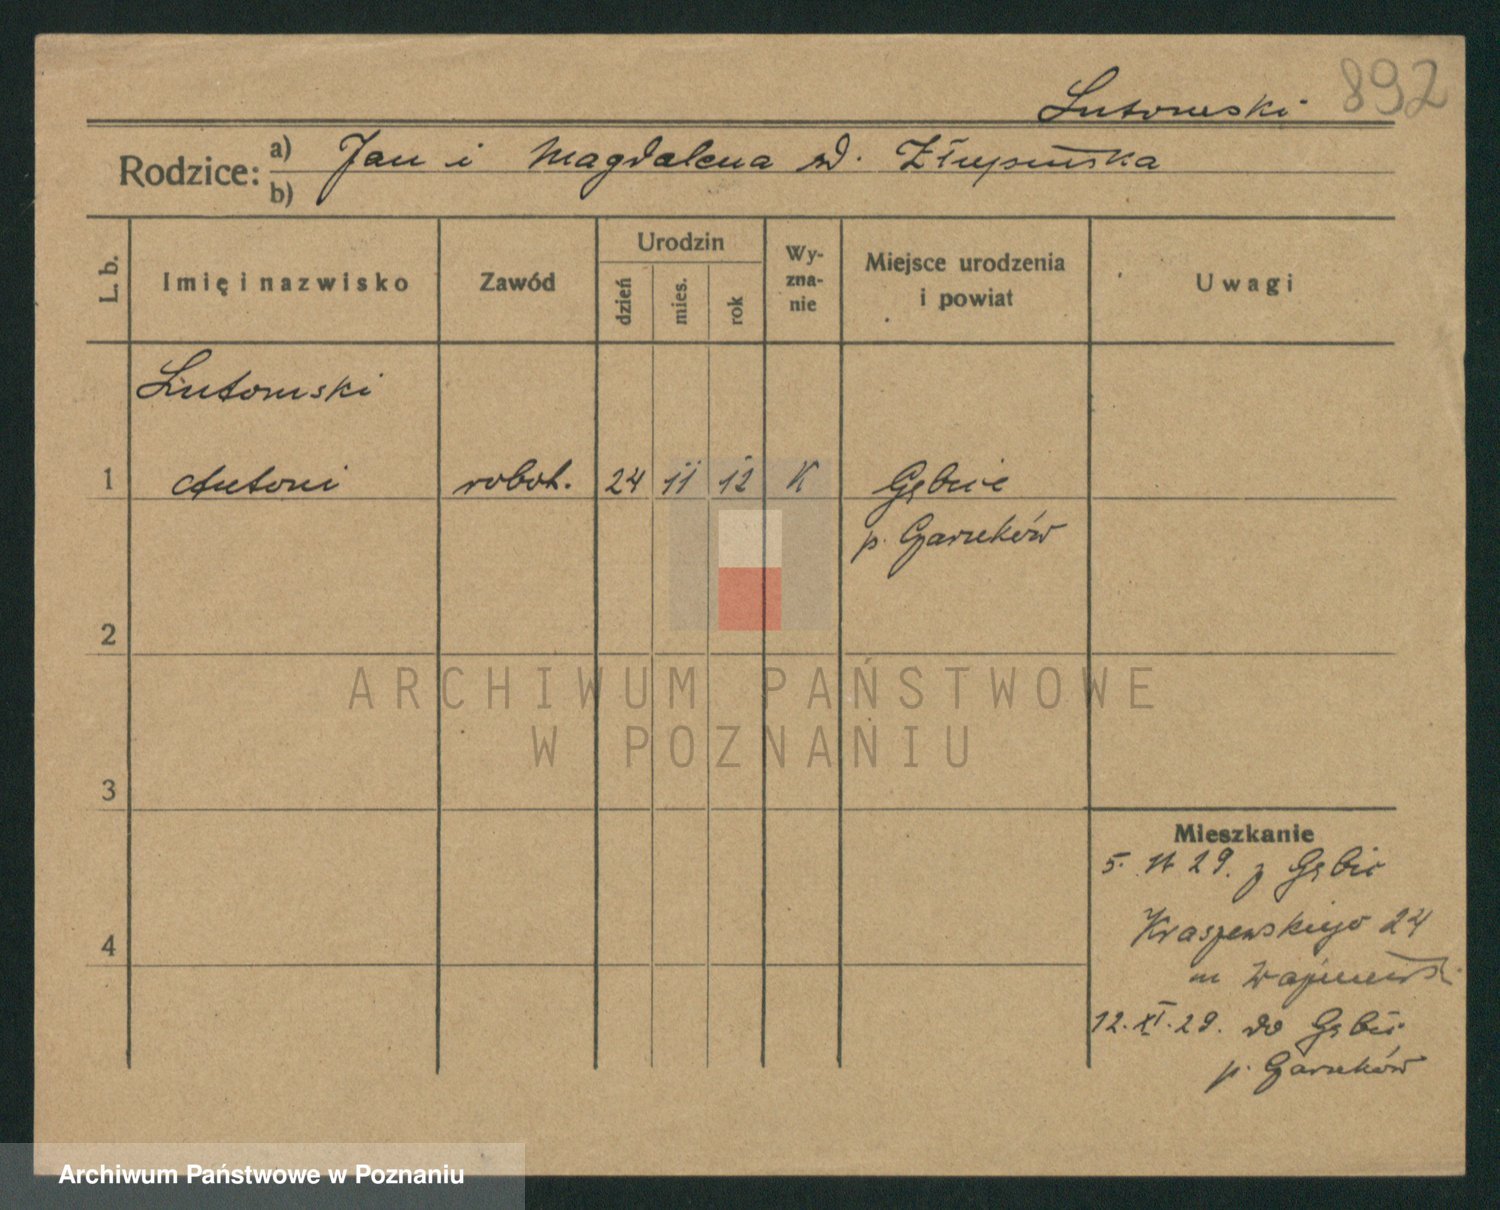 892
Lutomski
Rodzice: a) Jan i Magdalena zd.
b)
L. b. Imię i nazwisko Zawód Urodzin dzień mies. rok Wyznanie Miejsce urodzenia i powiat Uwagi
Lutomski
1 Antoni robot. 24 11 12 K Gębice
p. Czarnków
2
ARCHIWUM PAŃSTWOWE
W POZNANIU
3
Mieszkanie
5. 11 29. z Gębic
4 Kraszewskiego 24
m
12. XI. 29. do Gębic
p. Czarnków
Archiwum Państwowe w Poznaniu